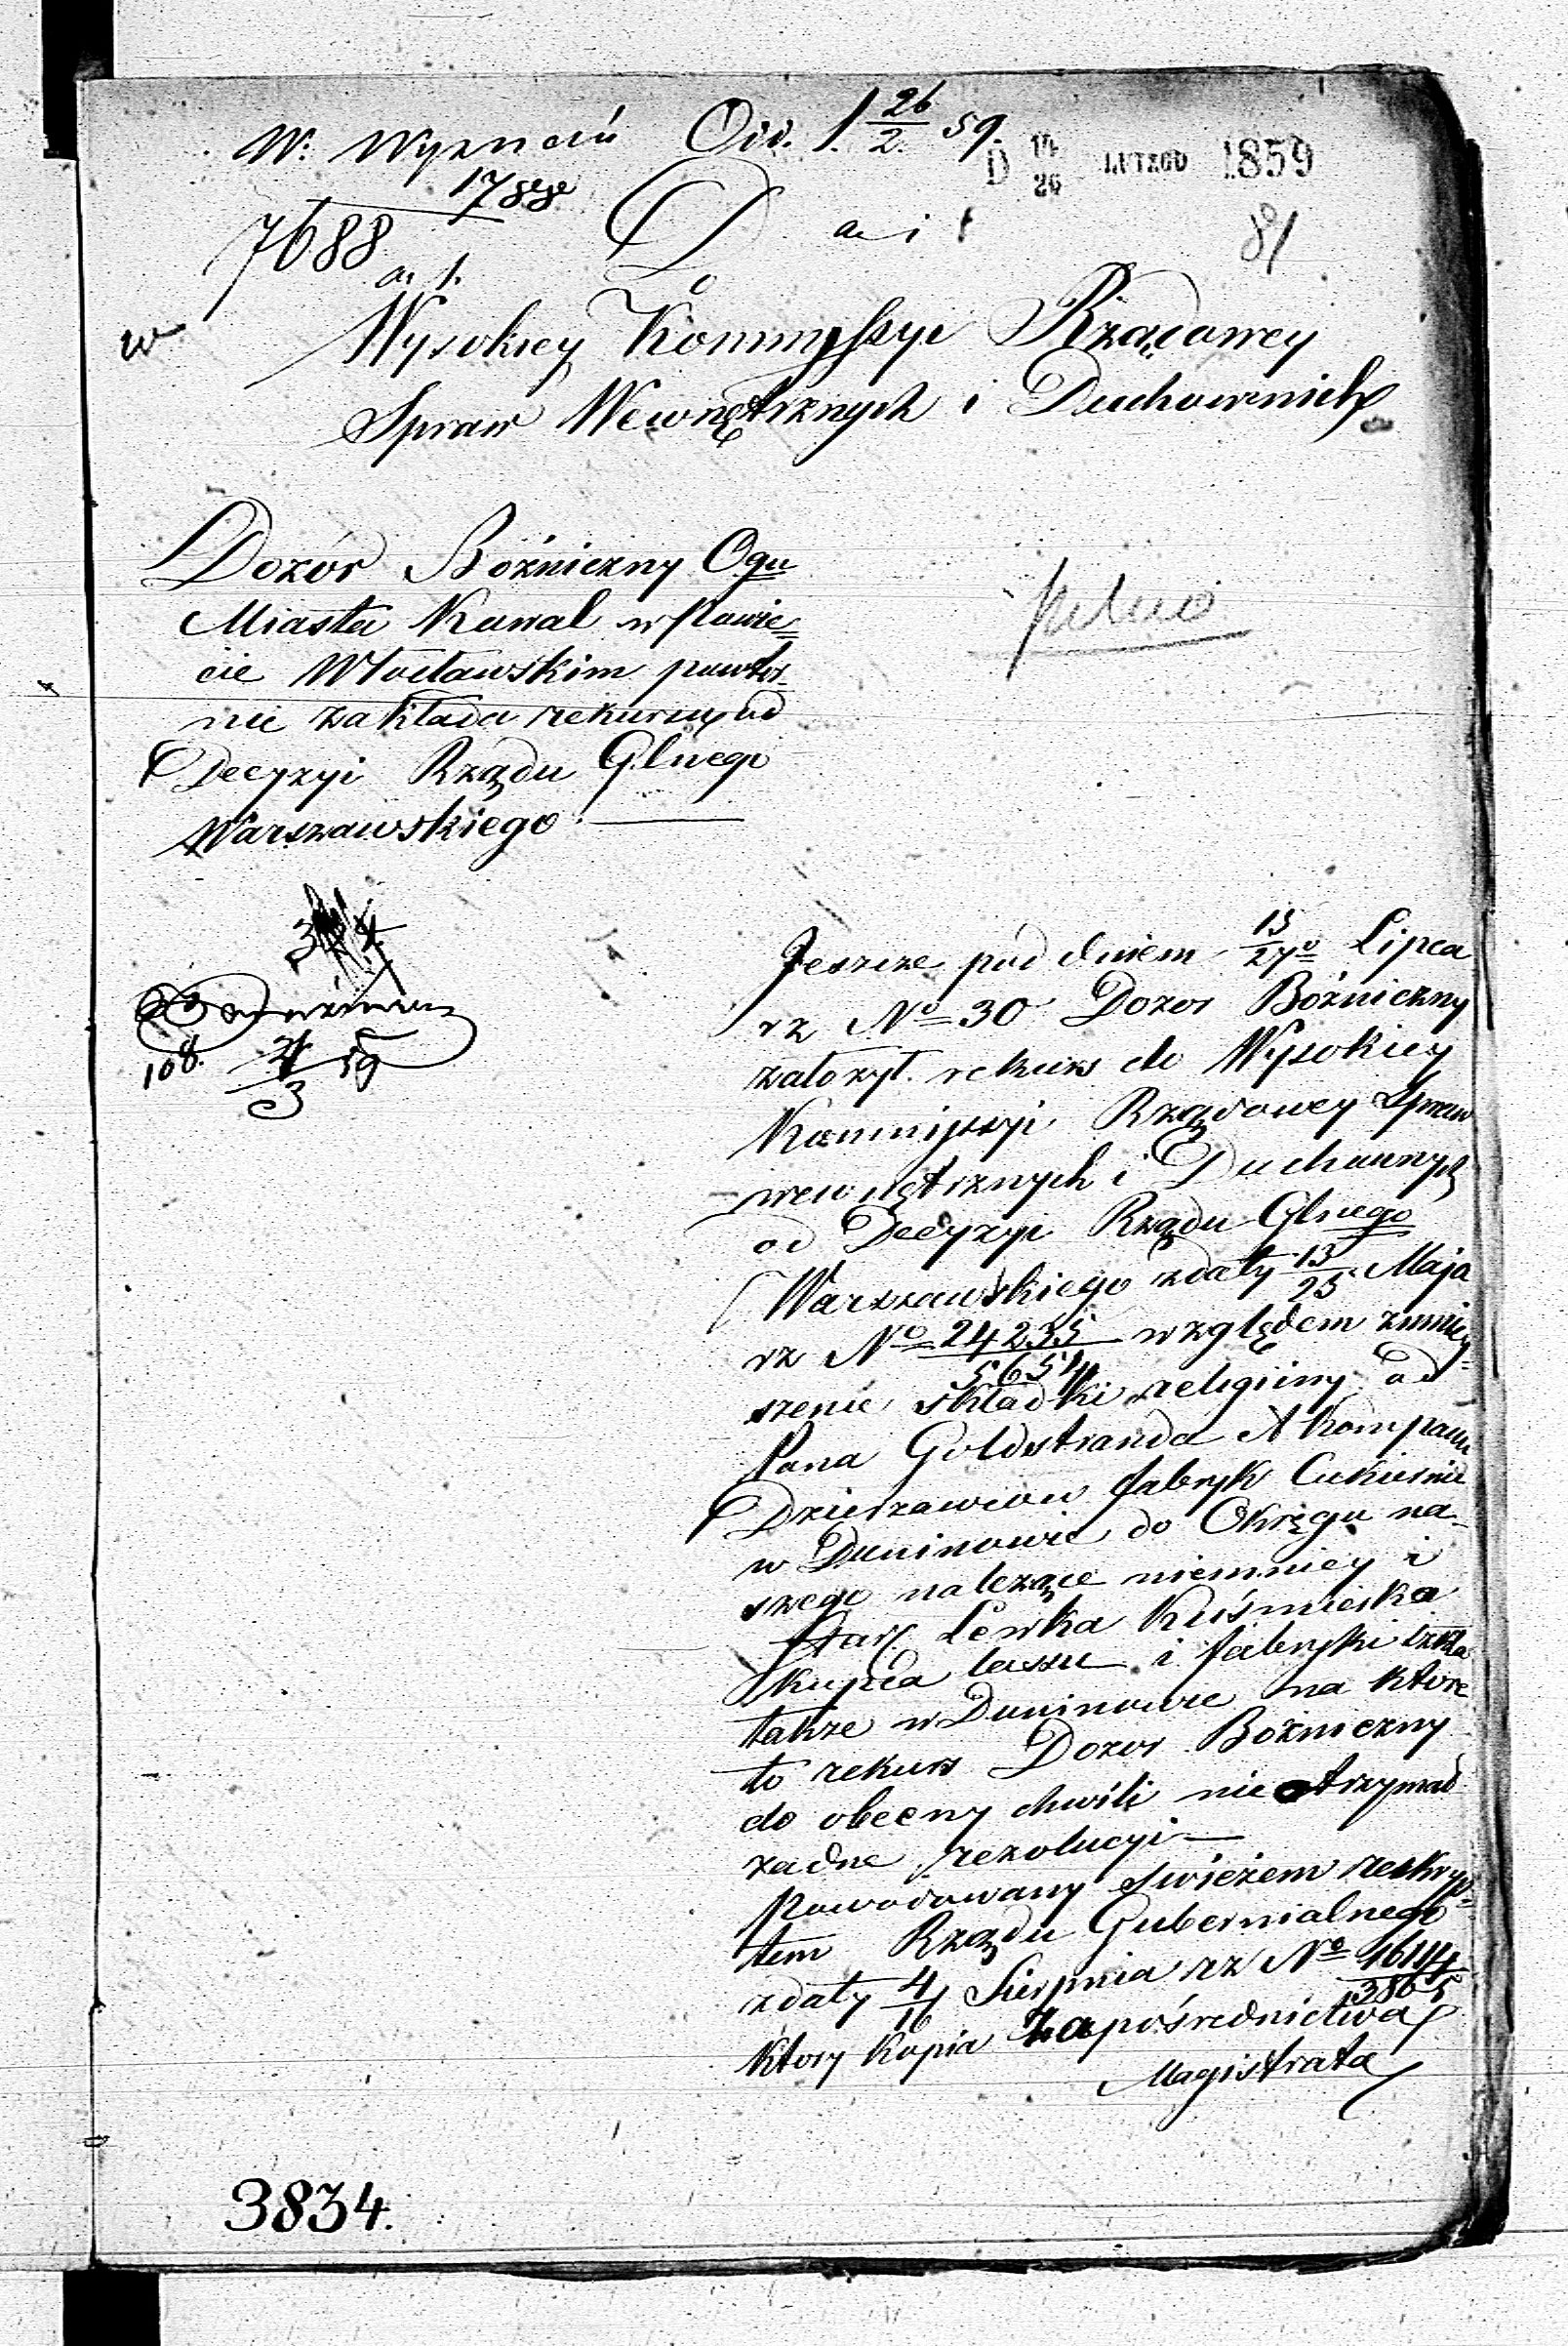 W. Wyznań Od. 1. 26/2. 59.
D 14/26 LUTEGO 1859
7688
81
Do
Wysokiey Kommyssyi Rządowey
Spraw Wewnętrznych i Duchownich
Dozór Bóżniczny Ogu
Miasta Kowal w Powie=
cie Włocławskim powtór=
nie zakłada rekurs od
Decyzyi Rządu Glnego
Warszawskiego
pilno
108. 4/3 59
Jeszcze pod dniem 15/27o Lipca
rz No 30 Dozor Bóżniczny
założył rekurs do Wysokiey
Kommissyi Rządowey Spraw
wewnętrznych i Duchownych
od Decyzyi Rządu Glnego
Warszawskiego zdaty 13/25 Maja
rz No 24235/5654 względem zmniey=
szenie składki religiiny od
Pana Goldstanda et Kompanii
Dzierzawców fabryk Cukiernie
w Duninowie do Okręgu na-
szego należące niemniey i
Lewka Kuśmierka
Kupca lassu i fabryki szkła
takze w Duninowie na ktore
to rekurs Dozor Bożniczny
do obecny chwili nie otrzymał
zadne rezolucyi
Powodowany świeżem reskryp=
tem Rządu Gubernialnego
zdaty 4/16 Sierpnia rz No
Ktory kopia Za pośrednictwa
Magistrata
3834.